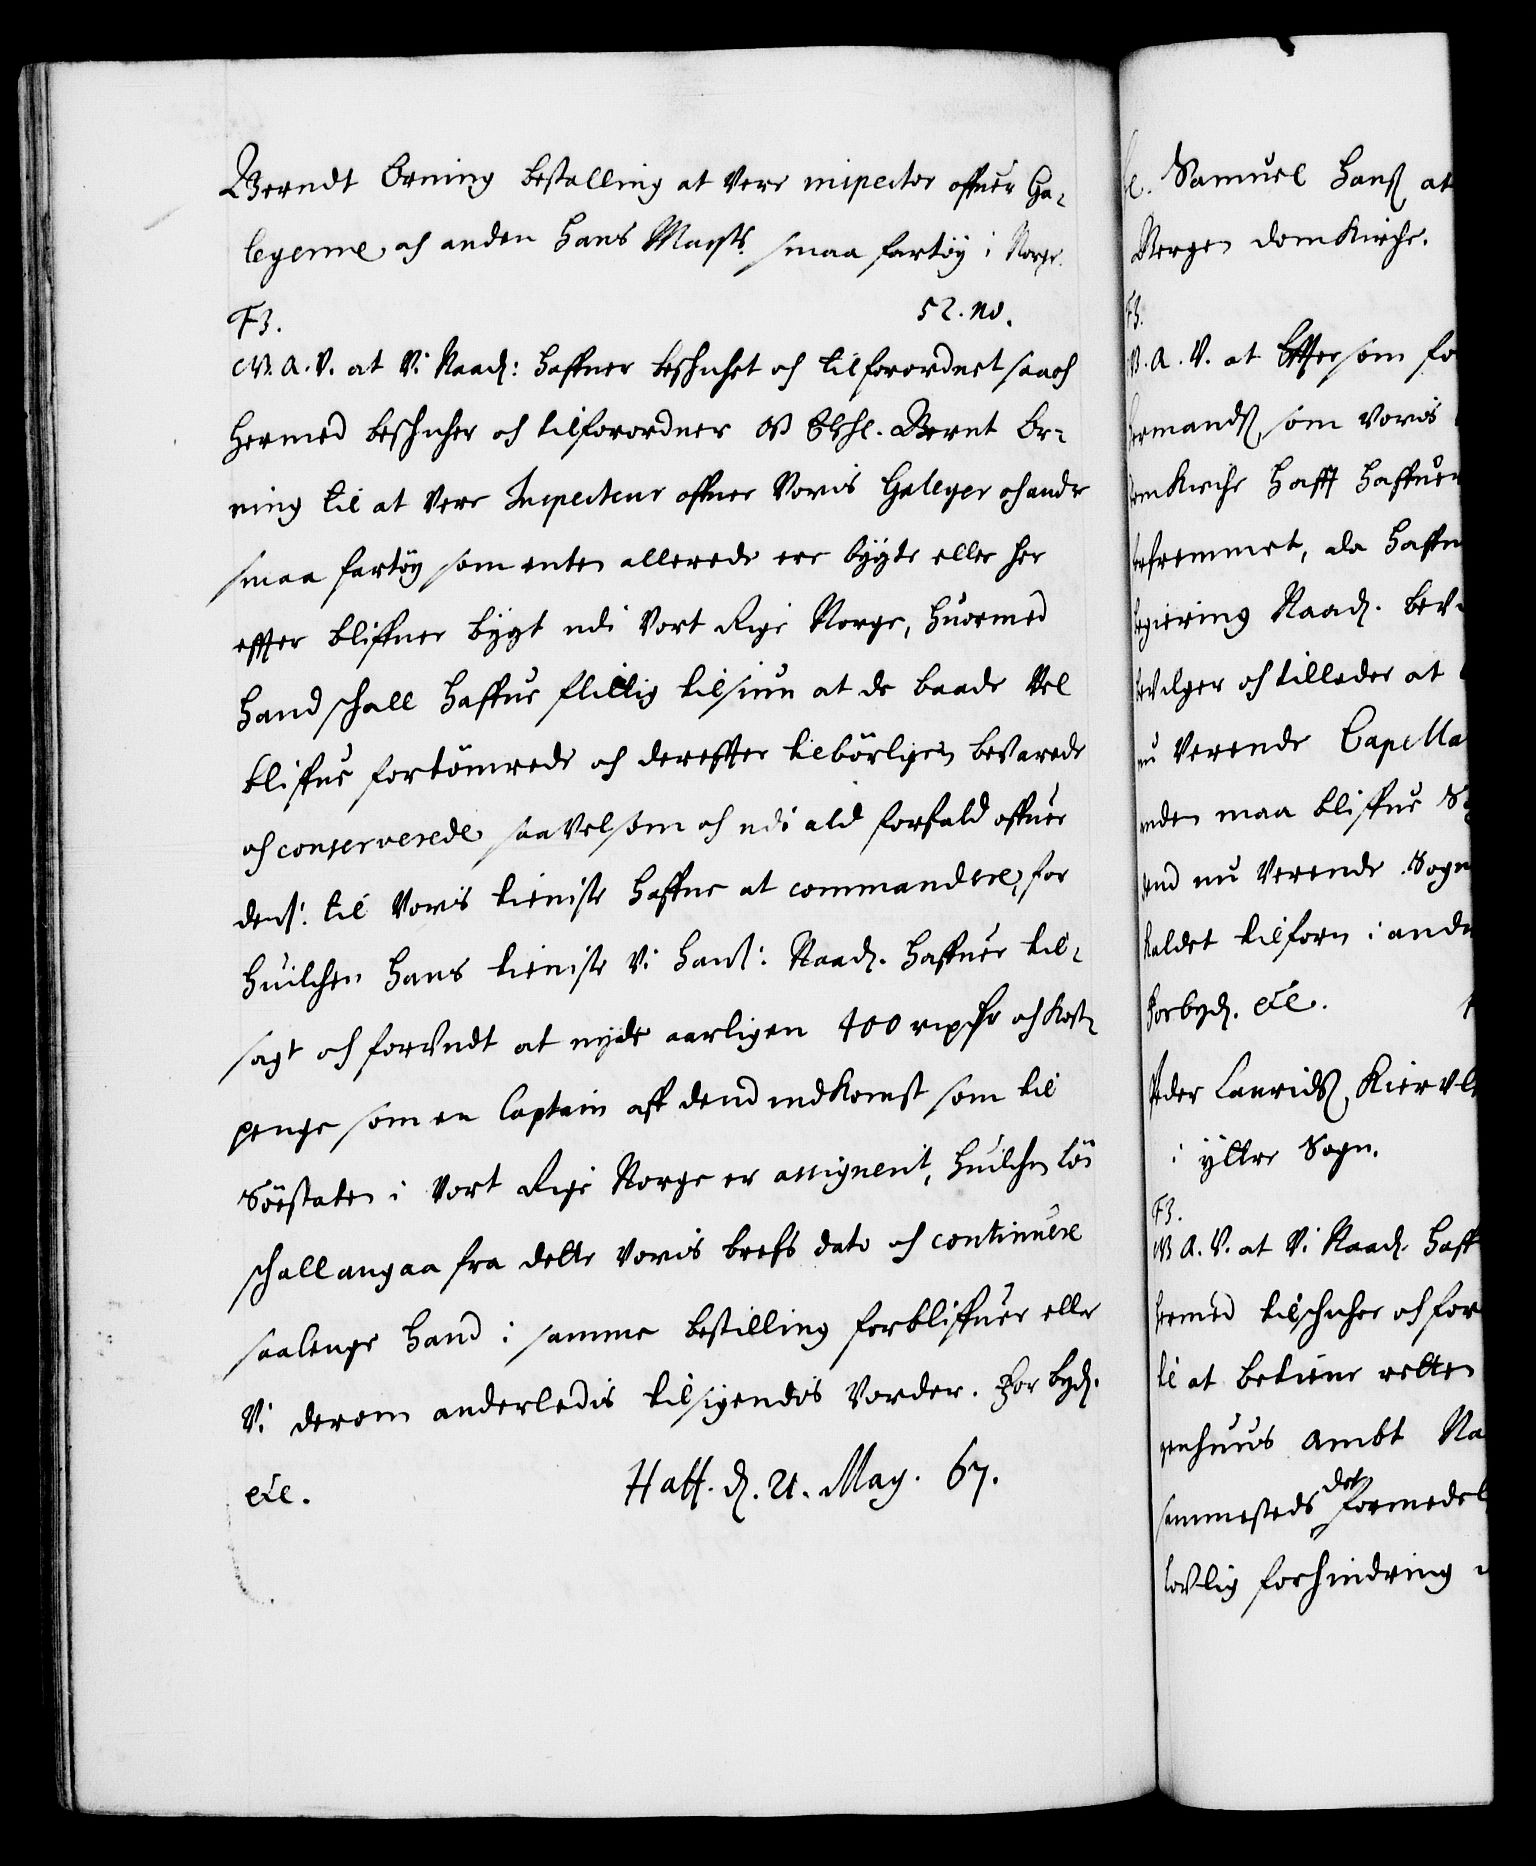 Berndt Orning bestalling at vere inspector offuer Ga-
leyerne och anden Hans Mayts. smaa fartöy i Norge.
F3.
52. no.
W. A. V. at Vi Naad: haffuer beskichet och tilforordnet saa och
hermed beskicher och tilforordner Os Elshl. Bernt Or-
ning til at vere Inspecteur offuer Voris Galeyer och andre
smaa fartöy som enten allerede ere bygte eller her
effter bliffuer bygt udi Vort Rige Norge, huormed
hand schall haffue flittig tilsiun at de baade Vel
bliffue fortömrede och dereffter tilbörligen bevarede
och conserverede saavelsom och udi ald forfald offuer
dens: til Voris tieniste haffue at commandere, for
huilchen hans tieniste Vi hans: Naad. haffuer til-
sagt och forundt at nyde aarligen 400 rixdr och kost-
penge som en Captain aff dend indkomst som til
Söestaten i Vort Rige Norge er assigneret, huilchen lön
schall angaa fra dette Voris brefs dato och continuere
saalenge hand i samme bestilling forbliffuer eller
Vi derom anderledis tilsigendis Vorder. Forbyd.
etc. Haff. d. 21. May. 67.
Samuel Hanss at
Bergen domkirche.
F3.
W. A. V. at Efftersom
som Voris
kirche hafft haffuer
befremmet, da haffu
Regiering Naad. bev
bevilger och tillader at
nu Verende Capella
maa bliffue
dend nu Verende Sogn
kaldet tilforn i
Forbyd. etc.
Peder Lauridss
i yttre Sogn.
F3.
W A. V. at Vi Naad. haff
hermed tilschicher och for
til at betiene retten
huus Ambt Na
sammesteds det formedelst
lovlig forhindring